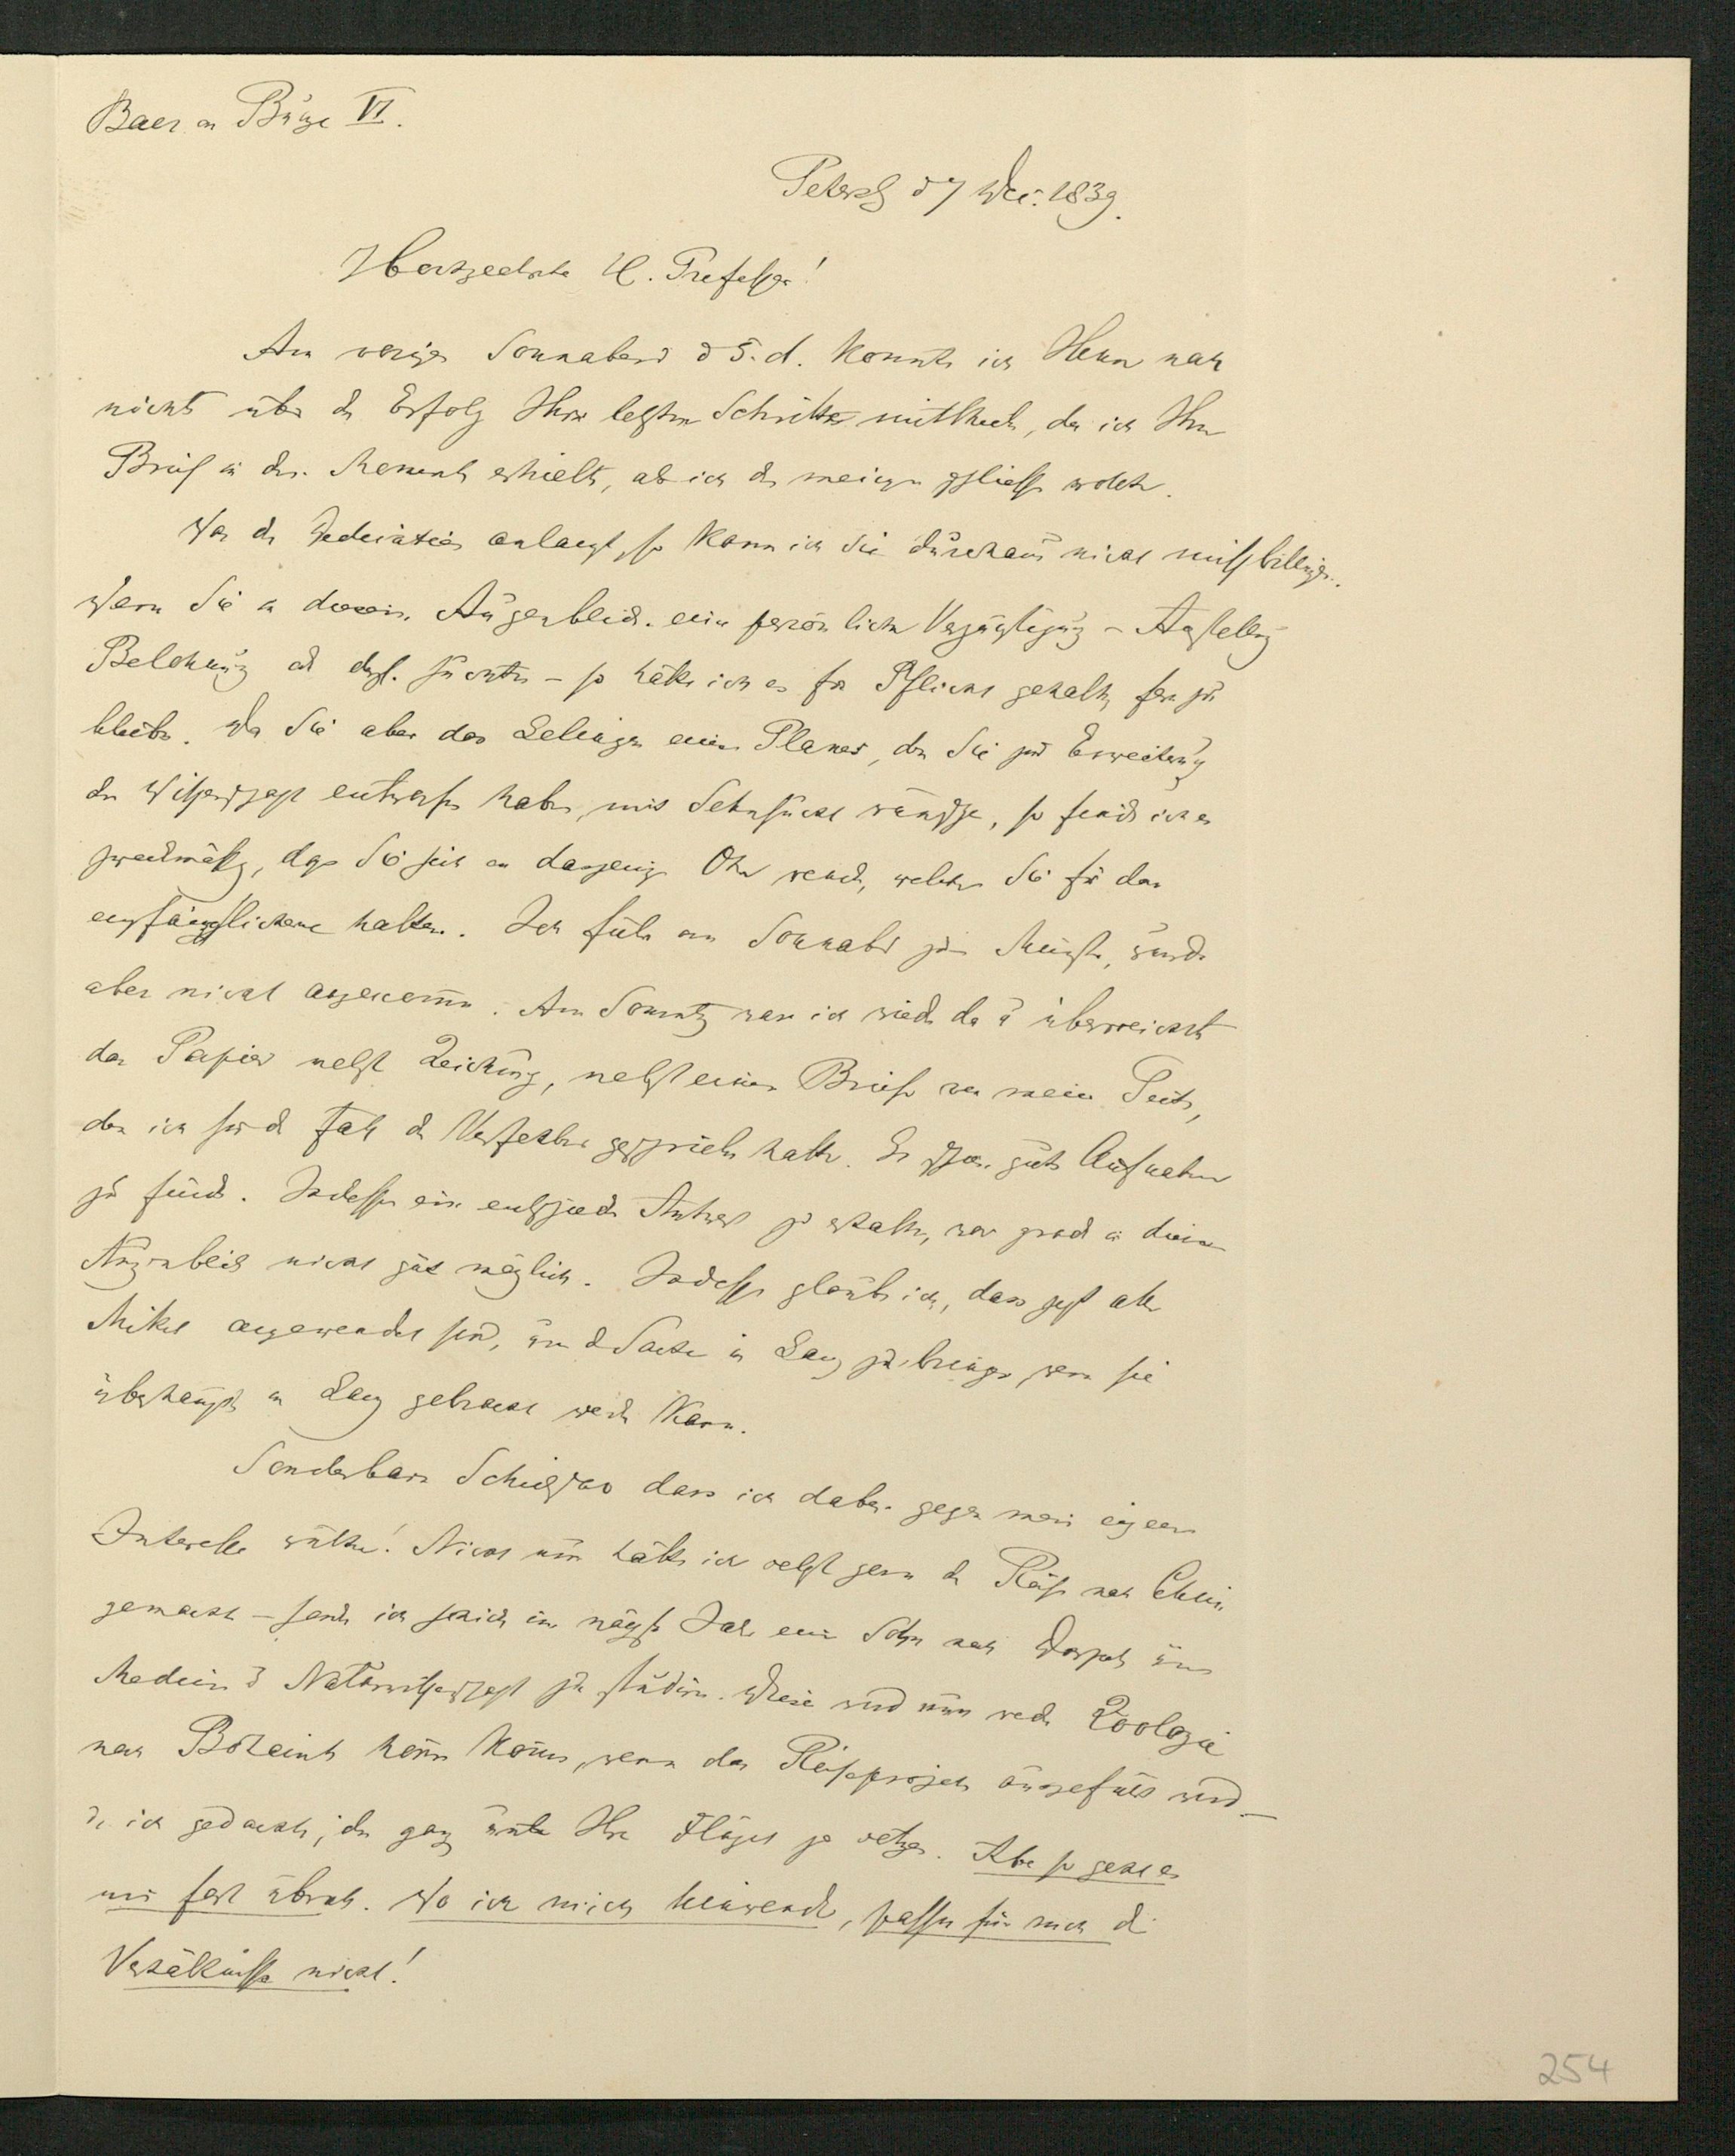 Baer an Bunge VI.
Petersb d 7 Dec. 1839.
Hochgeehrter H. Professor!
Am vorigen Sonnabend d 5. d. konnte ich Ihnen noch
nichts über den Erfolg Ihrer letzten Schritte mittheilen, da ich Ihren
Brief in dem Momente erhielt, als ich den meinigen schliessen wollte.
Was die Dedication anlangt, so kann ich sie durchaus nicht missbilligen.
Wenn Sie in diesem Augenblick eine persönliche Vergünstigung – Anstellung
Belohnung od dergl. suchten – so hätte ich es für Pflicht gehalten, fern zu
bleiben. Da Sie aber das Gelingen eines Planes, den Sie zur Erweiterung
der Wissenschaft entworfen haben, mit Sehnsucht wünschen, so finde ich es
zweckmässig, dass Sie sich an dasjenige Ohr wenden, welches Sie für das
empfänglichere halten. Ich fuhr am Sonnabend zum Minister, wurde
aber nicht angenommen. Am Sonntag war ich wieder da u überreichte
das Papier nebst Zeichnung, nebst einem Briefe von meiner Seite,
den ich für den Fall des Verfehlens geschrieben hatte. Es schien gute Aufnahme
zu finden. Indessen eine entscheidende Antwort zu erhalten, war grade in diesem
Augenblick nicht gut möglich. Indessen glaube ich, dass jetzt alle
Mittel angewendet sind, um d Sache in Gang zu bringen, wenn sie
überhaupt in Gang gebracht werden kann.
Sonderbares Schicksal dass ich dabei gegen mein eigenes
Interesse wirke! Nicht nur hätte ich selbst gern die Reise nach China
gemacht – sende ich ich im nächsten Jahre einen Sohn nach Dorpat um
Medicin u Naturwissenschaft zu studiren. Diese wird nun weder Zoologie
noch Botanik hören können, wenn das Reiseproject ausgeführt wird –
u ich gedachte, ihn ganz unter Ihre Flügel zu setzen. Aber so geht es
mir fast überall. Wo ich mich hinwende, passen für mich die
Verhältnisse nicht!
254